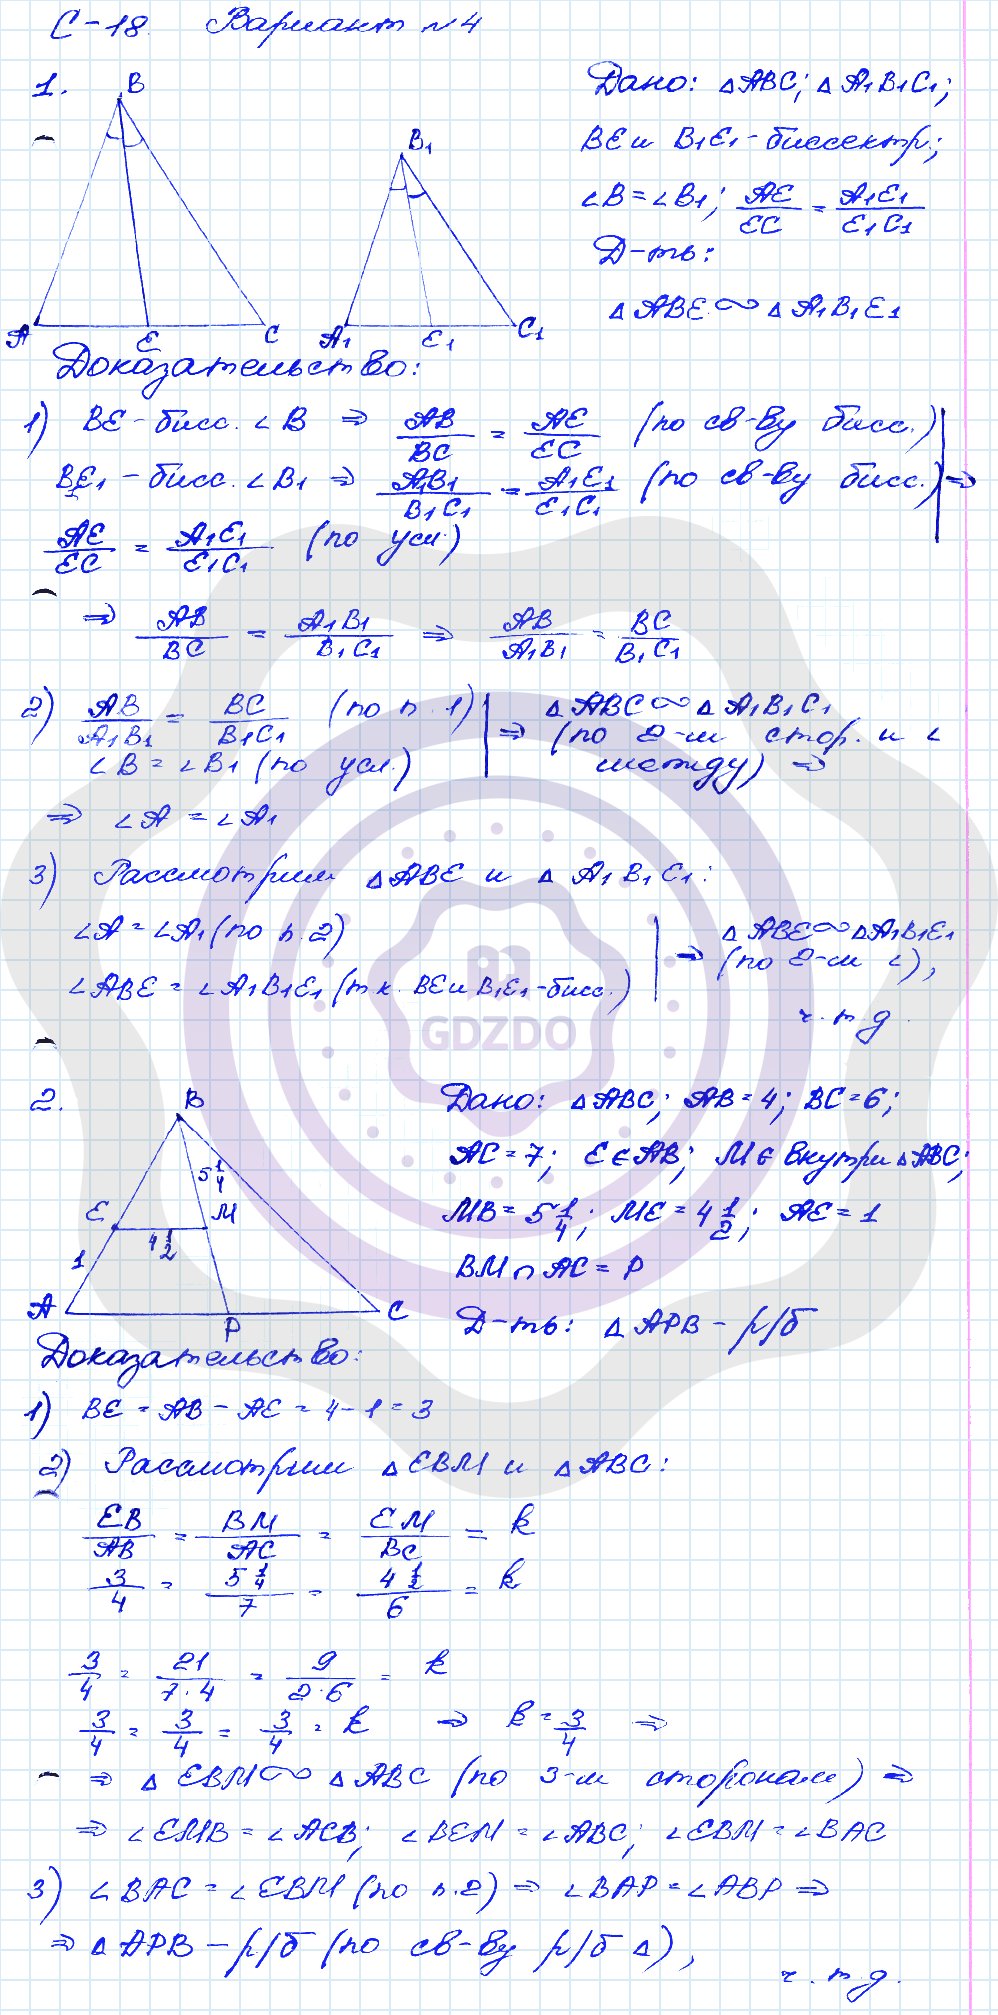 С-18. Вариант №4
1.
B
A E C
B₁
A₁ E₁ C₁
Дано: △ABC; △A₁B₁C₁;
BE и B₁E₁ - биссектр.;
∠B = ∠B₁; AE/EC = A₁E₁/E₁C₁
Д-ть:
△ABE ∾ △A₁B₁E₁
Доказательство:
1) BE - бисс. ∠B ⇒ AB/BC = AE/EC (по св-ву бисс.)
BE₁ - бисс. ∠B₁ ⇒ A₁B₁/B₁C₁ = A₁E₁/E₁C₁ (по св-ву бисс.) ⇒
AE/EC = A₁E₁/E₁C₁ (по усл.)
⇒ AB/BC = A₁B₁/B₁C₁ ⇒ AB/A₁B₁ = BC/B₁C₁
2) AB/A₁B₁ = BC/B₁C₁ (по п. 1)
∠B = ∠B₁ (по усл.)
⇒ △ABC ∾ △A₁B₁C₁
(по 2-м стор. и ∠
между) ⇒
⇒ ∠A = ∠A₁
3) Рассмотрим △ABE и △A₁B₁E₁:
∠A = ∠A₁ (по п. 2)
∠ABE = ∠A₁B₁E₁ (т.к. BE и B₁E₁ - бисс.)
⇒ △ABE ∾ △A₁B₁E₁
(по 2-м ∠),
ч.т.д.
GDZDO
2.
B
5 1/4
E M
4 1/2
1
A P C
Дано: △ABC; AB = 4; BC = 6;
AC = 7; E ∈ AB; M ∈ внутри △ABC;
MB = 5 1/4; ME = 4 1/2; AE = 1
BM ∩ AC = P
Д-ть: △APB - р/б
Доказательство:
1) BE = AB - AE = 4 - 1 = 3
2) Рассмотрим △EBM и △ABC:
EB/AB = BM/AC = EM/BC = k
3/4 = 5 1/4/7 = 4 1/2/6 = k
3/4 = 21/7·4 = 9/2·6 = k
3/4 = 3/4 = 3/4 = k ⇒ k = 3/4 ⇒
⇒ △EBM ∾ △ABC (по 3-м сторонам) ⇒
⇒ ∠EMB = ∠ACB; ∠BEM = ∠ABC; ∠EBM = ∠BAC
3) ∠BAC = ∠EBM (по п. 2) ⇒ ∠BAP = ∠ABP ⇒
⇒ △APB - р/б (по св-ву р/б △),
ч.т.д.